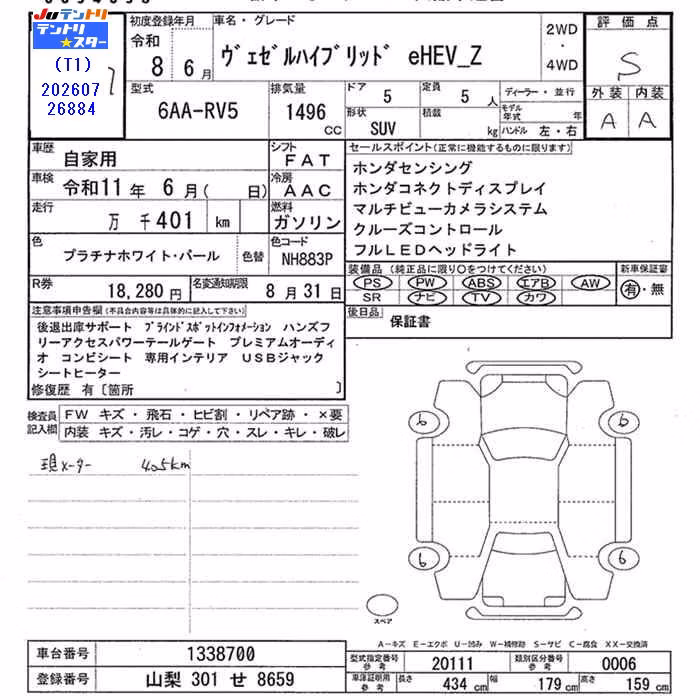 Juテントリ
テントリ
★スター
(T1)
202607
26884
初度登録年月
令和
8 6月
車名・グレード
ヴェゼルハイブリッド eHEV_Z
2WD
・
4WD
評価点
S
外装 内装
A A
型式
6AA-RV5
排気量
1496
CC
ドア
5
定員
5人
形状
SUV
積載
kg
ディーラー・並行
モデル年式 年
ハンドル 左・右
車歴
自家用
シフト
FAT
車検
令和11年 6月( 日)
冷房
AAC
走行
万 千401 km
燃料
ガソリン
色
プラチナホワイト・パール
色替
色コード
NH883P
R券
18,280円
名変通知期限
8月31日
セールスポイント(正常に機能するものに限ります)
ホンダセンシング
ホンダコネクトディスプレイ
マルチビューカメラシステム
クルーズコントロール
フルLEDヘッドライト
装備品(純正品に限り〇をつけてください)
PS PW ABS エアB AW
SR ナビ TV カワ
新車保証書
有・無
後日品
保証書
注意事項申告欄(不具合内容等は具体的に記入して下さい)
後退出庫サポート ブラインドスポットインフォメーション ハンズフ
リーアクセスパワーテールゲート プレミアムオーディ
オ コンビシート 専用インテリア USBジャック
シートヒーター
修復歴 有〔箇所 〕
検査員
記入欄
FW キズ・飛石・ヒビ割・リペア跡・×要
内装 キズ・汚レ・コゲ・穴・スレ・キレ・破レ
現メーター 405km
6 6
6 6
スペア
A-キズ E-エクボ U-凹み W-補修跡 S-サビ C-腐食 XX-交換済
車台番号
1338700
登録番号
山梨 301 せ 8659
型式指定番号
参考
20111
類別区分番号
参考
0006
車庫証明用
参考
長さ 434 cm
幅 179 cm
高さ 159 cm